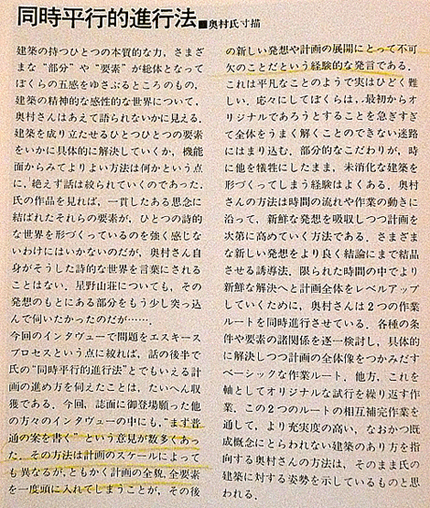 同時平行的進行法■奥村氏寸描
建築の持つひとつの本質的な力，さまざ
まな“部分”や“要素”が総体となって
ぼくらの五感をゆさぶるところのもの，
建築の精神的な感性的な世界について，
奥村さんはあえて語られないかに見える．
建築を成り立たせるひとつひとつの要素
をいかに具体的に解決していくか，機能
面からみてよりよい方法は何かという点
に，絶えず話は絞られていくのであった．
氏の作品を見れば，一貫したある思念に
結ばれたそれらの要素が，ひとつの詩的
な世界を形づくっているのを強く感じな
いわけにはいかないのだが，奥村さん自
身がそうした詩的な世界を言葉にされる
ことはない．星野山荘についても，その
発想のもとにある部分をもう少し突っ込
んで伺いたかったのだが……．
今回のインタヴューで問題をエスキース
プロセスという点に絞れば，話の後半で
氏の“同時平行的進行法”とでもいえる計
画の進め方を伺えたことは，たいへん収
穫である．今回，誌面に御登場願った他
の方々のインタヴューの中にも，“まず普
通の案を書く”という意見が数多くあっ
た．その方法は計画のスケールによって
も異なるが，ともかく計画の全貌，全要素
を一度頭に入れてしまうことが，その後
の新しい発想や計画の展開にとって不可
欠のことだという経験的な発言である．
これは平凡なことのようで実はひどく難
しい．応々にしてぼくらは，最初からオ
リジナルであろうとすることを急ぎすぎ
て全体をうまく解くことのできない迷路
にはまり込む．部分的なこだわりが，時
に他を犠牲にしたまま，未消化な建築を
形づくってしまう経験はよくある．奥村
さんの方法は時間の流れや作業の動きに
沿って，新鮮な発想を吸収しつつ計画を
次第に高めていく方法である．さまざま
な新しい発想をより良く結論にまで結晶
させる誘導法，限られた時間の中でより
新鮮な解決へと計画全体をレベルアップ
していくために，奥村さんは２つの作業
ルートを同時進行させている．各種の条
件や要素の諸関係を逐一検討し，具体的
に解決しつつ計画の全体像をつかみだす
ベーシックな作業ルート．他方，これを
軸としてオリジナルな試行を繰り返す作
業．この２つのルートの相互補完作業を
通して，より充実度の高い，なおかつ既
成概念にとらわれない建築のあり方を指
向する奥村さんの方法は，そのまま氏の
建築に対する姿勢を示しているものと思
われる．